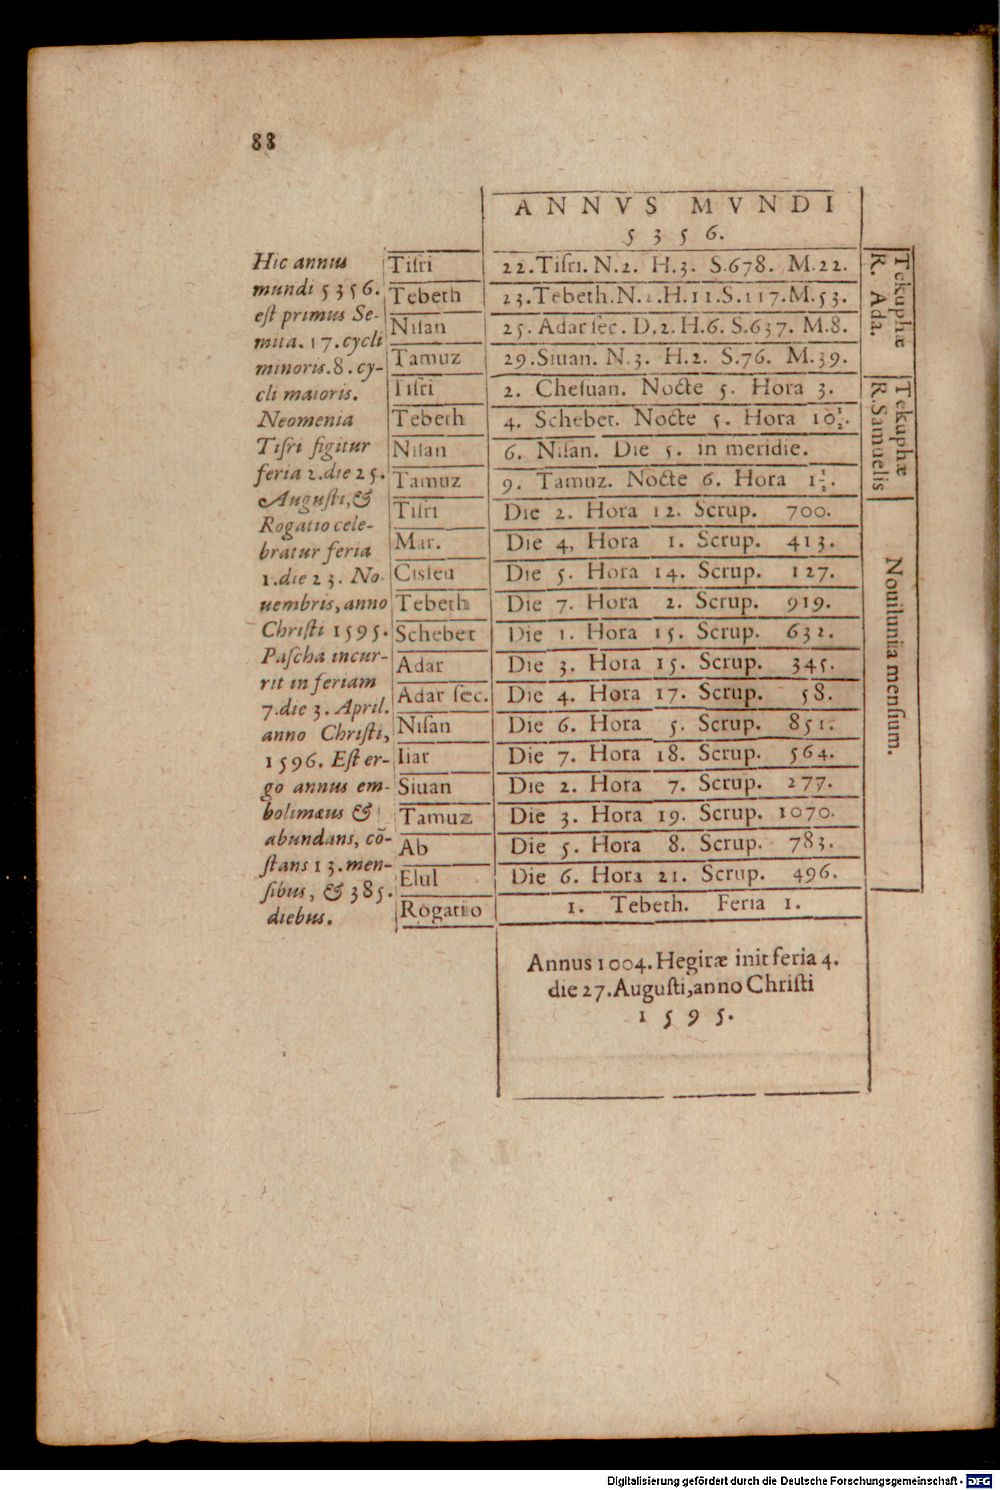 88
ANNVS MVNDI
5356.
Tiſri 22.Tiſri. N.2. H.3. S.678. M.22.
Tebeth 23.Tebeth.N. H.11.S.117.M.53.
Niſan 25. Adar ſec. D.2. H.6. S.637. M.8.
Tamuz 29.Siuan. N.3. H.2. S.76. M.39.
Tekuphæ
R. Ada.
Tiſri 2. Cheſuan. Nocte 5. Hora 3.
Tebeth 4. Schebet. Nocte 5. Hora 10½.
Niſan 6. Niſan. Die 5. in meridie.
Tamuz 9. Tamuz. Nocte 6. Hora 1½.
Tekuphæ
R. Samuelis
Tiſri Die 2. Hora 12. Scrup. 700.
Mar. Die 4, Hora 1. Scrup. 413.
Cisleu Die 5. Hora 14. Scrup. 127.
Tebeth Die 7. Hora 2. Scrup. 919.
Schebet Die 1. Hora 15. Scrup. 632.
Adar Die 3. Hora 15. Scrup. 345.
Adar ſec. Die 4. Hora 17. Scrup. 58.
Niſan Die 6. Hora 5. Scrup. 851.
Iiar Die 7. Hora 18. Scrup. 564.
Siuan Die 2. Hora 7. Scrup. 277.
Tamuz Die 3. Hora 19. Scrup. 1070.
Ab Die 5. Hora 8. Scrup. 783.
Elul Die 6. Hora 21. Scrup. 496.
Nouilunia menſium.
Rogatio 1. Tebeth. Feria 1.
Annus 1004. Hegiræ init feria 4.
die 27. Auguſti, anno Chriſti
1595.
Hic annus
mundi 5356.
eſt primus Se-
mita. 17. cycli
minoris. 8. cy-
cli maioris.
Neomenia
Tiſri figitur
feria 2. die 25.
Auguſti, &
Rogatio cele-
bratur feria
1. die 23. No-
uembris, anno
Chriſti 1595.
Paſcha incur-
rit in feriam
7. die 3. April.
anno Chriſti,
1596. Eſt er-
go annus em-
bolimæus &
abundans, cõ-
ſtans 13. men-
ſibus, & 385.
diebus.
Digitalisierung gefördert durch die Deutsche Forschungsgemeinschaft - DFG